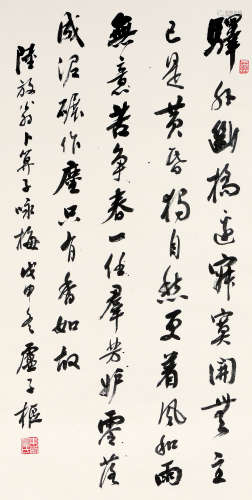 驛外斷橋邊寂寞開無主
已是黃昏獨自愁更着風和雨
無意苦爭春一任羣芳妒零落
成泥碾作塵只有香如故
陸放翁卜算子咏梅戊申冬盧子樞